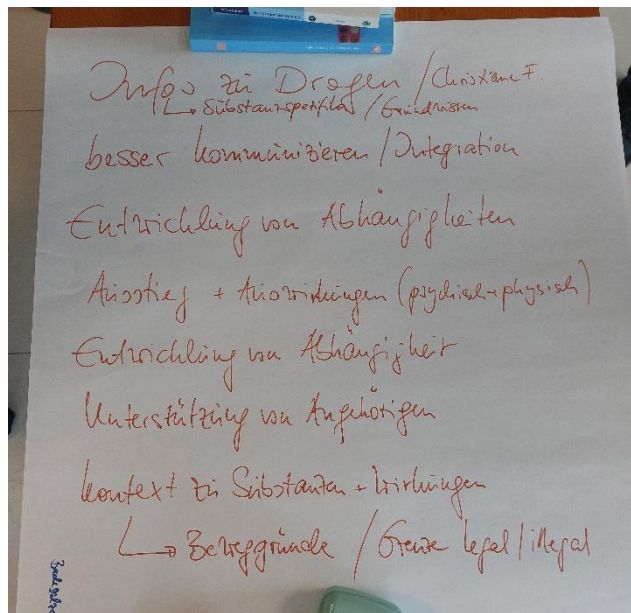 Infos zu Drogen / Christiane F.
↳ Substanzspezifika / Grundwissen
besser kommunizieren / Integration
Entwicklung von Abhängigkeiten
Ausstieg + Auswirkungen (psychisch + physisch)
Entwicklung von Abhängigkeit
Unterstützung von Angehörigen
Kontext zu Substanzen + Wirkungen
↳ Beweggründe / Grenze legal / illegal